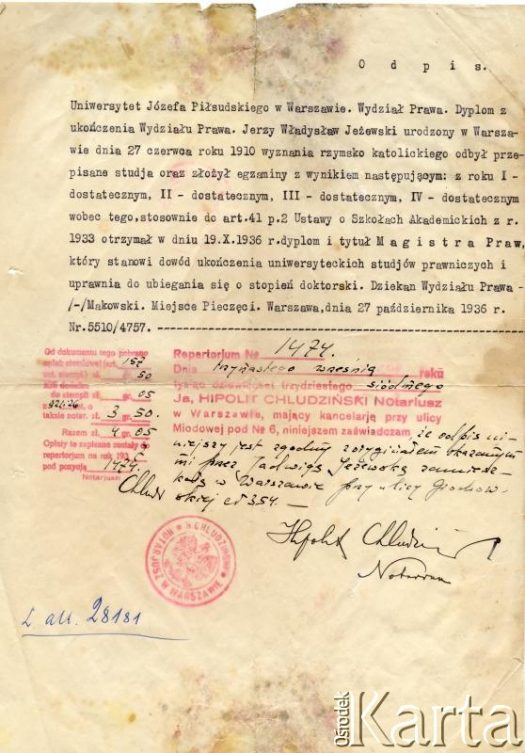 O d p i s.
Uniwersytet Józefa Piłsudskiego w Warszawie. Wydział Prawa. Dyplom z
ukończenia Wydziału Prawa. Jerzy Władysław Jeżewski urodzony w Warsza-
wie dnia 27 czerwca roku 1910 wyznania rzymsko katolickiego odbył prze-
pisane studja oraz złożył egzaminy z wynikiem następującym: z roku I-
dostatecznym, II - dostatecznym, III - dostatecznym, IV - dostatecznym
wobec tego,stosownie do art.41 p.2 Ustawy o Szkołach Akademickich z r.
1933 otrzymał w dniu 19.X.1936 r.dyplom i tytuł M a g i s t r a P r a w,
który stanowi dowód ukończenia uniwersyteckich studjów prawniczych i
uprawnia do ubiegania się o stopień doktorski. Dziekan Wydziału Prawa -
/-/Makowski. Miejsce Pieczęci. Warszawa,dnia 27 października 1936 r.
Nr.5510/4757. -
Od dokumentu tego pobrano
157
50
do stempli zł. gr. 05
taksie notar. zł. 3 gr. 50.
Razem zł. 4 gr. 05
Opłaty te zapisane zostały do
repertorium na rok 193
pod pozycją 1474.
Notarjusz
Repertorium № 1474.
Dnia trzynastego września roku
tysiąc dziewięćset trzydziestego siódmego
Ja, HIPOLIT CHLUDZIŃSKI Notariusz
w Warszawie, mający kancelarję przy ulicy
Miodowej pod № 6, niniejszem zaświadczam że odpis ni-
niejszy jest zgodny z oryginałem okazanym
mi przez Jadwigę Jeżewską zamieszk-
ałą w Warszawie przy ulicy Grochow-
skiej № 354. —
Hipolit Chludziński
Notariusz
H. CHLUDZIŃSKI
NOTARJUSZ W WARSZAWIE
L. att. 28181
Ośrodek
Karta